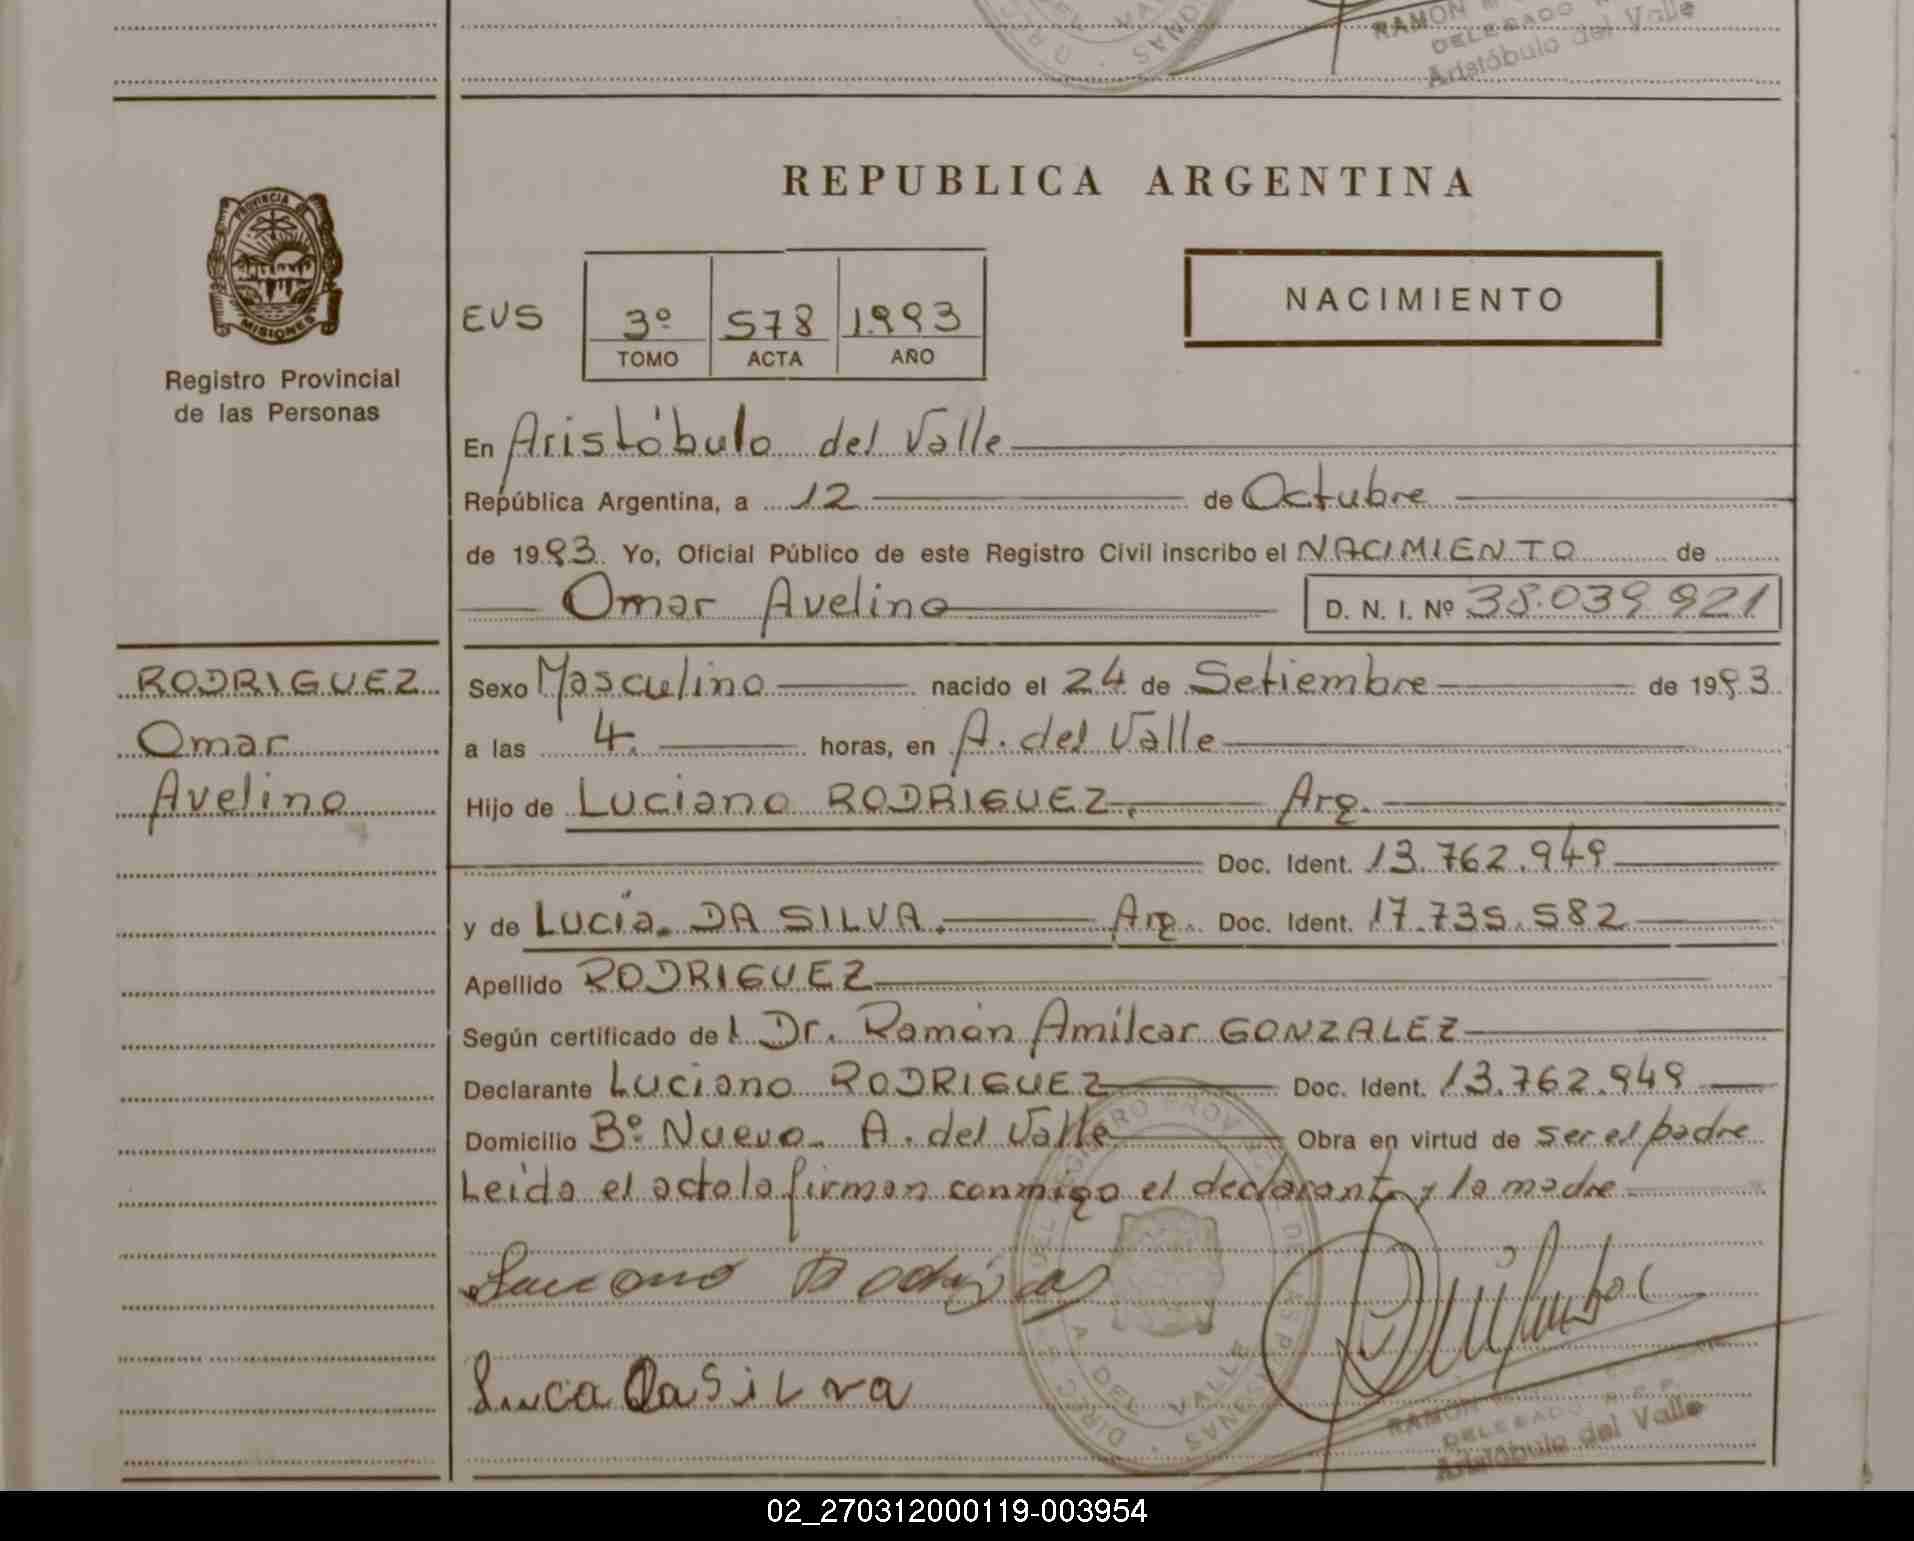 RAMON
DELEGADO
Aristóbulo del Valle
REPUBLICA ARGENTINA
PROVINCIA DE
MISIONES
Registro Provincial
de las Personas
EVS 3º 578 1993
TOMO ACTA AÑO
NACIMIENTO
En Aristóbulo del Valle
República Argentina, a 12 de Octubre
de 1993. Yo, Oficial Público de este Registro Civil inscribo el NACIMIENTO de
Omar Avelino D. N. I. Nº 38.039.921
RODRIGUEZ
Omar
Avelino
Sexo Masculino nacido el 24 de Setiembre de 1993.
a las 4. horas, en A. del Valle
Hijo de Luciano RODRIGUEZ, Arg.
Doc. Ident. 13.762.949
y de Lucía DA SILVA. Arg. Doc. Ident. 17.735.582
Apellido RODRIGUEZ
Según certificado del Dr. Ramón Amilcar GONZALEZ
Declarante Luciano RODRIGUEZ Doc. Ident. 13.762.949
Domicilio Bº Nuevo. A. del Valle Obra en virtud de ser el padre
Leída el acta la firman conmigo el declarante y la madre
Luciano Rodrigues
Luca Da SiLva
A. DEL VALLE
RAMON
DELEGADO R.P.P.
Aristóbulo del Valle
02_270312000119-003954